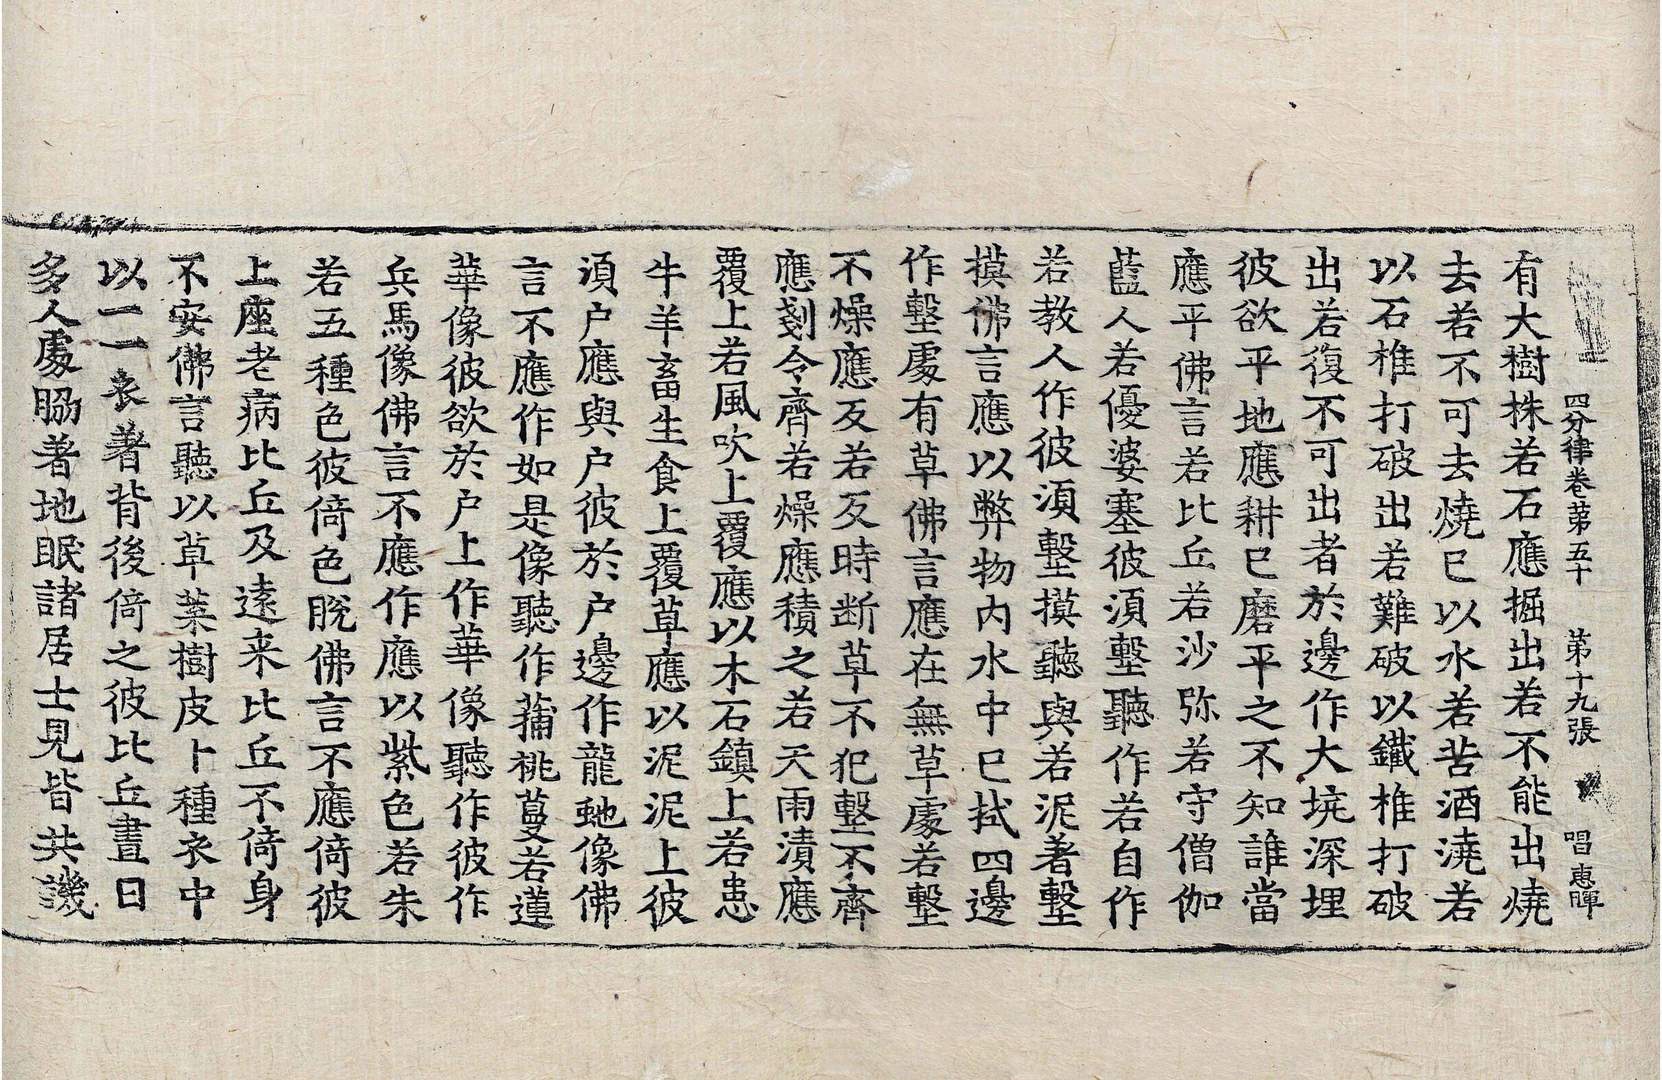 四分律卷苐五十 第十九張 唱 惠暉
有大樹株若石應掘出若不能出燒
去若不可去燒巳以水若苦酒澆若
以石椎打破出若難破以鐵椎打破
出若復不可出者於邊作大埮深埋
彼欲平地應耕巳磨平之不知誰當
應平佛言若比丘若沙弥若守僧伽
藍人若優婆塞彼湏墼聽作若自作
若教人作彼湏墼摸聽與若泥著墼
摸佛言應以弊物內水中巳拭四邊
作墼處有草佛言應在無草處若墼
不燥應反若反時断草不犯墼不齊
應剗令齊若燥應積之若天雨漬應
覆上若風吹上覆應以木石鎮上若患
牛羊畜生食上覆草應以泥泥上彼
湏户應與户彼於户邊作龍虵像佛
言不應作如是像聽作蒱桃蔓若蓮
華像彼欲於户上作華像聽作彼作
兵馬像佛言不應作應以紫色若朱
若五種色彼倚色脫佛言不應倚彼
上座老病比丘及遠来比丘不倚身
不安佛言聽以草菜樹皮十種衣中
以一一衣著背後倚之彼比丘晝日
多人處脇著地眠諸居士見皆共譏